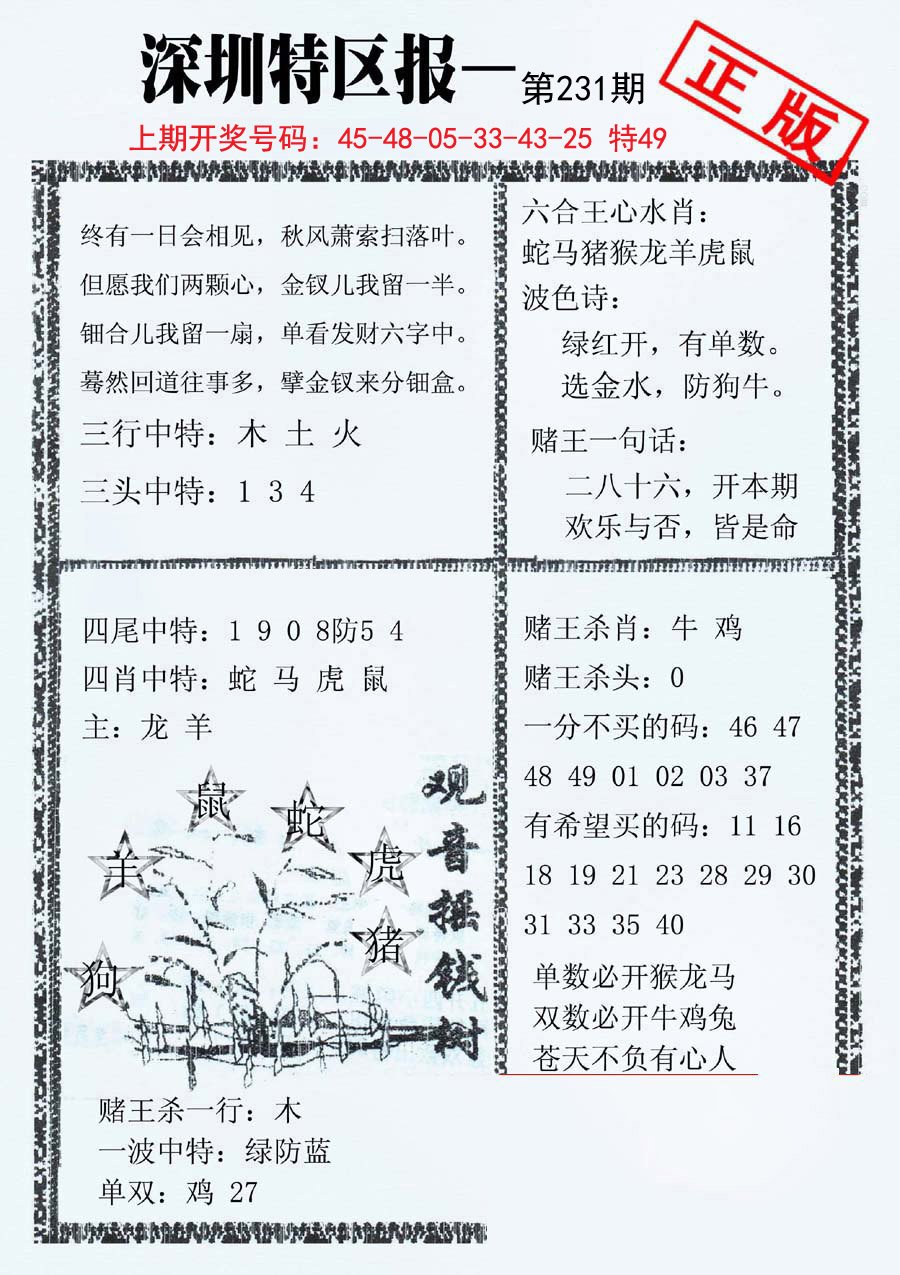 深圳特区报—第231期
正版
上期开奖号码：45-48-05-33-43-25 特49
终有一日会相见，秋风萧索扫落叶。
但愿我们两颗心，金钗儿我留一半。
钿合儿我留一扇，单看发财六字中。
蓦然回道往事多，擘金钗来分钿盒。
三行中特：木 土 火
三头中特：1 3 4
六合王心水肖：
蛇马猪猴龙羊虎鼠
波色诗：
绿红开，有单数。
选金水，防狗牛。
赌王一句话：
二八十六，开本期
欢乐与否，皆是命
四尾中特：1 9 0 8防5 4
四肖中特：蛇 马 虎 鼠
主：龙 羊
鼠
蛇
羊
虎
猪
狗
观音摇钱树
赌王杀一行：木
一波中特：绿防蓝
单双：鸡 27
赌王杀肖：牛 鸡
赌王杀头：0
一分不买的码：46 47
48 49 01 02 03 37
有希望买的码：11 16
18 19 21 23 28 29 30
31 33 35 40
单数必开猴龙马
双数必开牛鸡兔
苍天不负有心人